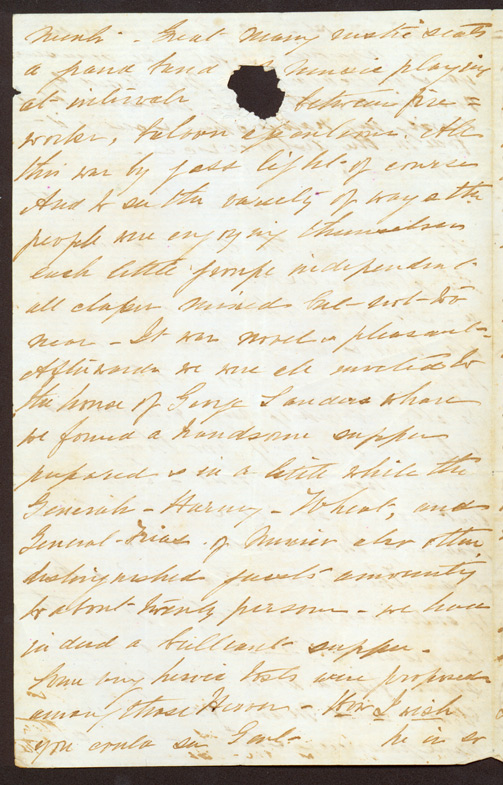 ments - Great many rustic seats
a grand band of music playing
at intervals between fire =
works, baloon &c. All
this was by gass light of course
And to see the variety of ways the
people were enjoying themselves
each little groupe independent
all classes mixed but not too
near - It was novel & pleasant -
Afterwards we were all invited to
the house of George Sanders where
we found a handsome supper
prepared & in a little while the
Generals - Harney - Wheat, and
General - of Mexico also other
distinguished guests amounting
to about twenty persons - we had
in deed a brilliant supper -
Some very heroic tosts were proposed
among those Heroes - How I wish
you could see he is so